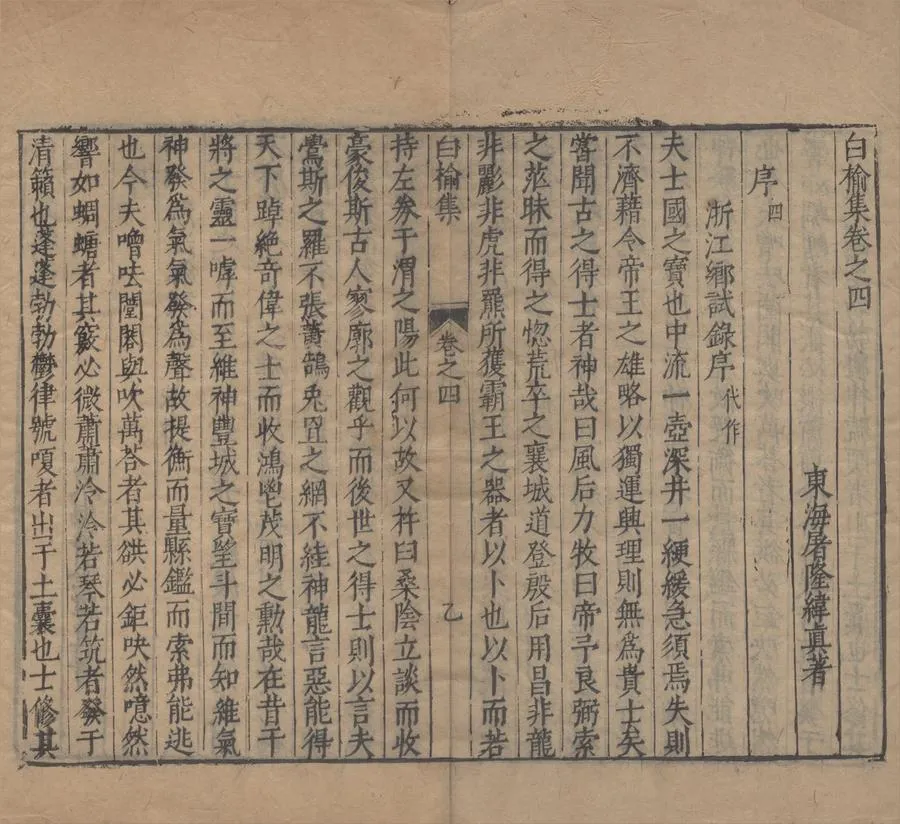 白榆集卷之四
東海屠隆緯真著
序四
浙江鄉試錄序代作
夫士國之寶也中流一壺深井一綆緩急須焉失則
不濟藉令帝王之雄略以獨運興理則無為貴士矣
嘗聞古之得士者神哉曰風后力牧曰帝予良弼索
之茫昧而得之惚荒卒之襄城道登殷后用昌非龍
非彲非虎非羆所獲霸王之器者以卜也以卜而若
白榆集 卷之四 乙
持左券于渭之陽此何以故又柞曰桑陰立談而收
豪俊斯古人寥廓之觀乎而後世之得士則以言夫
鷽斯之羅不張黃鵠兔罝之網不絓神龍言惡能得
天下踔絕奇偉之士而收鴻鬯茂明之勳哉在昔干
將之靈一嘑而至維神豐城之寶望斗間而知維氣
神發爲氣氣發爲聲故提衡而量縣鑑而索弗能逃
也今夫噲呿閶闔與吹萬荅者其䤥必鉅吷然噫然
響如蜩螗者其竅必微蕭蕭泠泠若琴若筑者發于
清籟也蓬蓬勃勃鬱律號嗄者出于土囊也士修其